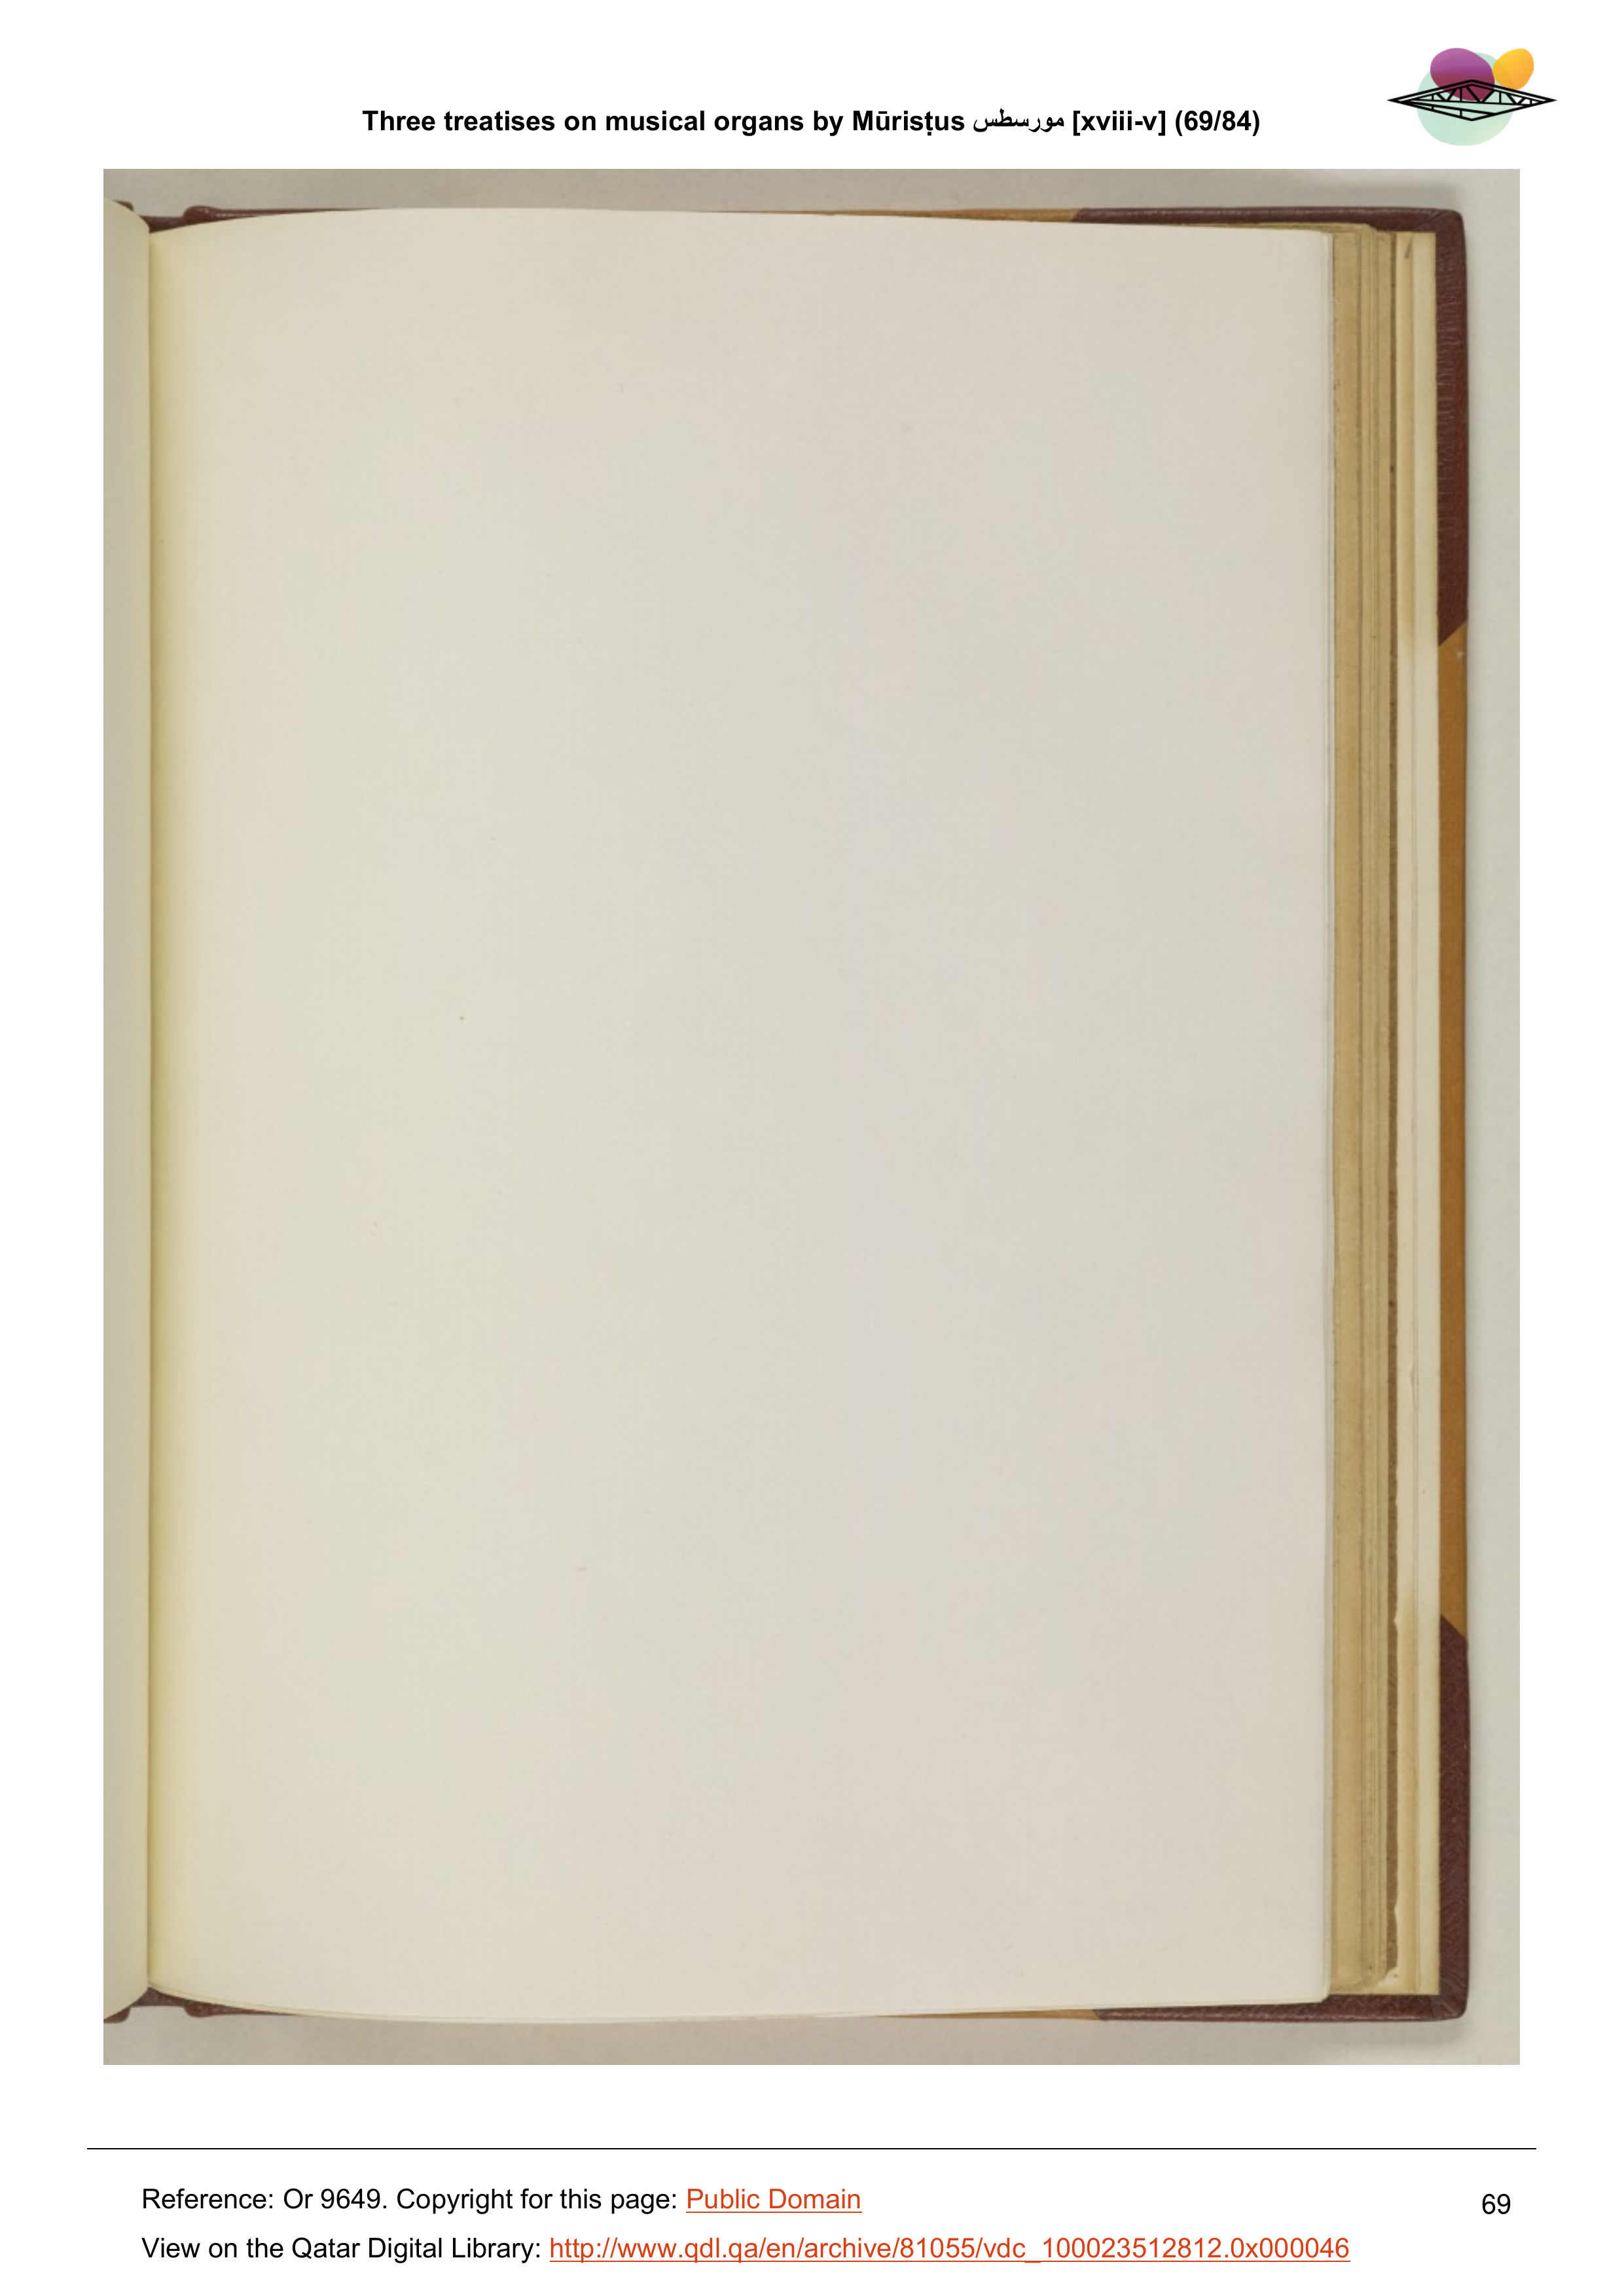 Three treatises on musical organs by Mūrisṭus مورسطس [xviii-v] (69/84)
Reference: Or 9649. Copyright for this page: Public Domain
69
View on the Qatar Digital Library: http://www.qdl.qa/en/archive/81055/vdc_100023512812.0x000046